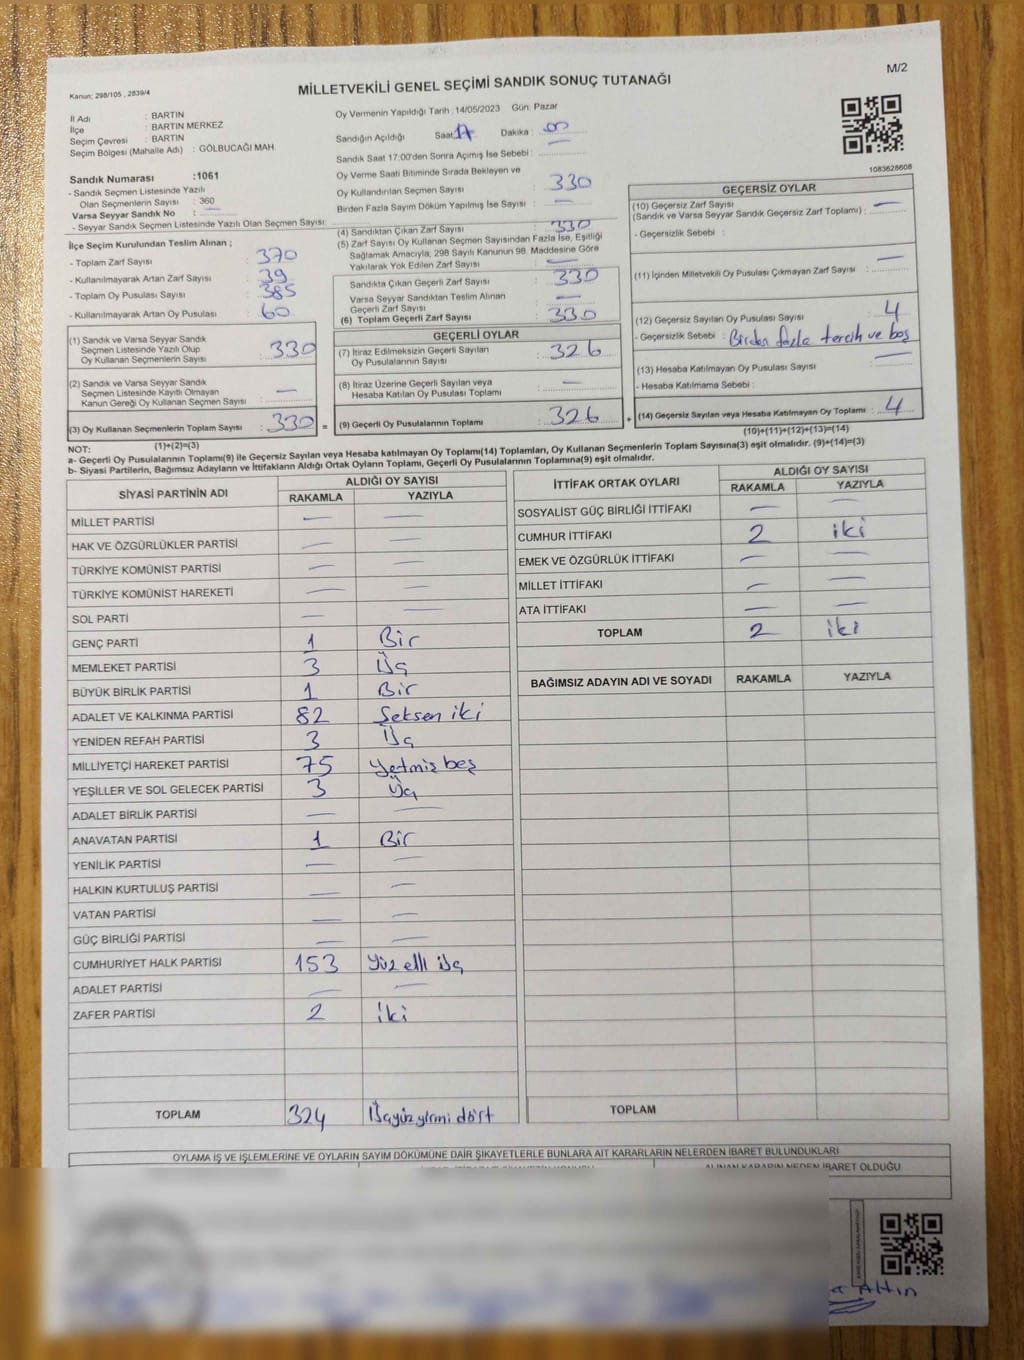 M/2
Kanun; 298/105 , 2839/4
MİLLETVEKİLİ GENEL SEÇİMİ SANDIK SONUÇ TUTANAĞI
İl Adı : BARTIN
İlçe : BARTIN MERKEZ
Seçim Çevresi : BARTIN
Seçim Bölgesi (Mahalle Adı) : GÖLBUCAĞI MAH.
Sandık Numarası :1061
- Sandık Seçmen Listesinde Yazılı
Olan Seçmenlerin Sayısı : 360
Varsa Seyyar Sandık No : —
- Seyyar Sandık Seçmen Listesinde Yazılı Olan Seçmen Sayısı:
Oy Vermenin Yapıldığı Tarih : 14/05/2023 Gün: Pazar
Sandığın Açıldığı Saat: 17 Dakika : 00
Sandık Saat 17:00'den Sonra Açımış İse Sebebi :
Oy Verme Saati Bitiminde Sırada Bekleyen ve
Oy Kullandırılan Seçmen Sayısı : 330
Birden Fazla Sayım Döküm Yapılmış İse Sayısı : —
1083628608
İlçe Seçim Kurulundan Teslim Alınan ;
- Toplam Zarf Sayısı : 370
- Kullanılmayarak Artan Zarf Sayısı : 39
- Toplam Oy Pusulası Sayısı : 385
- Kullanılmayarak Artan Oy Pusulası : 60
(1) Sandık ve Varsa Seyyar Sandık
Seçmen Listesinde Yazılı Olup
Oy Kullanan Seçmenlerin Sayısı : 330
(2) Sandık ve Varsa Seyyar Sandık
Seçmen Listesinde Kayıtlı Olmayan
Kanun Gereği Oy Kullanan Seçmen Sayısı : —
(3) Oy Kullanan Seçmenlerin Toplam Sayısı : 330 =
(1)+(2)=(3)
(4) Sandıktan Çıkan Zarf Sayısı : 330
(5) Zarf Sayısı Oy Kullanan Seçmen Sayısından Fazla İse, Eşitliği
Sağlamak Amacıyla, 298 Sayılı Kanunun 98. Maddesine Göre
Yakılarak Yok Edilen Zarf Sayısı : —
Sandıkta Çıkan Geçerli Zarf Sayısı : 330
Varsa Seyyar Sandıktan Teslim Alınan
Geçerli Zarf Sayısı : —
(6) Toplam Geçerli Zarf Sayısı : 330
GEÇERLİ OYLAR
(7) İtiraz Edilmeksizin Geçerli Sayılan
Oy Pusulalarının Sayısı : 326
(8) İtiraz Üzerine Geçerli Sayılan veya
Hesaba Katılan Oy Pusulası Toplamı : —
(9) Geçerli Oy Pusulalarının Toplamı : 326 +
GEÇERSİZ OYLAR
(10) Geçersiz Zarf Sayısı : —
(Sandık ve Varsa Seyyar Sandık Geçersiz Zarf Toplamı) :
- Geçersizlik Sebebi :
(11) İçinden Milletvekili Oy Pusulası Çıkmayan Zarf Sayısı : —
(12) Geçersiz Sayılan Oy Pusulası Sayısı : 4
- Geçersizlik Sebebi : Birden fazla tercih ve boş
(13) Hesaba Katılmayan Oy Pusulası Sayısı : —
- Hesaba Katılmama Sebebi :
(14) Geçersiz Sayılan veya Hesaba Katılmayan Oy Toplamı : 4
(10)+(11)+(12)+(13)=(14)
NOT:
a- Geçerli Oy Pusulalarının Toplamı(9) ile Geçersiz Sayılan veya Hesaba katılmayan Oy Toplamı(14) Toplamları, Oy Kullanan Seçmenlerin Toplam Sayısına(3) eşit olmalıdır. (9)+(14)=(3)
b- Siyasi Partilerin, Bağımsız Adayların ve İttifakların Aldığı Ortak Oyların Toplamı, Geçerli Oy Pusulalarının Toplamına(9) eşit olmalıdır.
SİYASİ PARTİNİN ADI ALDIĞI OY SAYISI
RAKAMLA YAZIYLA
MİLLET PARTİSİ — —
HAK VE ÖZGÜRLÜKLER PARTİSİ — —
TÜRKİYE KOMÜNİST PARTİSİ — —
TÜRKİYE KOMÜNİST HAREKETİ — —
SOL PARTİ — —
GENÇ PARTİ 1 Bir
MEMLEKET PARTİSİ 3 Üç
BÜYÜK BİRLİK PARTİSİ 1 Bir
ADALET VE KALKINMA PARTİSİ 82 Seksen iki
YENİDEN REFAH PARTİSİ 3 Üç
MİLLİYETÇİ HAREKET PARTİSİ 75 Yetmiş beş
YEŞİLLER VE SOL GELECEK PARTİSİ 3 Üç
ADALET BİRLİK PARTİSİ — —
ANAVATAN PARTİSİ 1 Bir
YENİLİK PARTİSİ — —
HALKIN KURTULUŞ PARTİSİ — —
VATAN PARTİSİ — —
GÜÇ BİRLİĞİ PARTİSİ — —
CUMHURİYET HALK PARTİSİ 153 Yüz elli üç
ADALET PARTİSİ — —
ZAFER PARTİSİ 2 iki
TOPLAM 324 Üçyüz yirmi dört
İTTİFAK ORTAK OYLARI ALDIĞI OY SAYISI
RAKAMLA YAZIYLA
SOSYALİST GÜÇ BİRLİĞİ İTTİFAKI — —
CUMHUR İTTİFAKI 2 iki
EMEK VE ÖZGÜRLÜK İTTİFAKI — —
MİLLET İTTİFAKI — —
ATA İTTİFAKI — —
TOPLAM 2 iki
BAĞIMSIZ ADAYIN ADI VE SOYADI RAKAMLA YAZIYLA
TOPLAM
OYLAMA İŞ VE İŞLEMLERİNE VE OYLARIN SAYIM DÖKÜMÜNE DAİR ŞİKAYETLERLE BUNLARA AİT KARARLARIN NELERDEN İBARET BULUNDUKLARI
ALINAN KARARIN NEDEN İBARET OLDUĞU
Altın